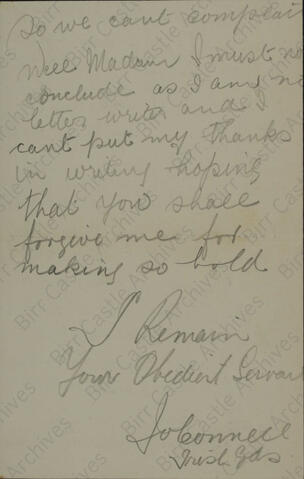 So we cant complain
Well Madam I must now
conclude as I am no
letter writer and I
cant put my thanks
in writing hoping
that you shall
forgive me for
making so bold
I Remain
Your Obedient Servant
J OConnell
Irish Gds
Birr Castle Archives